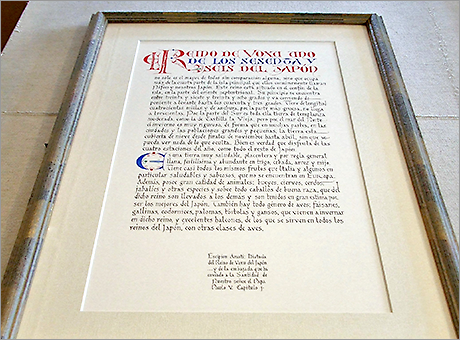 El Reino de Voxu, uno
de los sesenta y
seis del Japón
no solo es el mayor de todos sin comparación alguna, sino que ocupa
más de la cuarta parte de la isla principal que ellos comúnmente llaman
Nifon y nosotros Japón. Este reino está situado en el confín de la
isla, en la parte del oriente septentrional. Su principio se encuentra
entre treinta y siete y treinta y ocho grados y va corriendo de
poniente a levante hasta los cuarenta y tres grados. Tiene de longitud
cuatrocientas millas y de anchura, por la parte más gruesa,
a trescientas. Por la parte del Sur es toda ella tierra de templanza
moderada, como la de Castilla la Vieja, pero por el mar del Norte
el invierno es muy riguroso, de forma que en muchas partes, en las
ciudades y las poblaciones grandes y pequeñas, la tierra está
cubierta de nieve desde finales de noviembre hasta abril, sin que se
pueda ver nada de lo que oculta. Bien es verdad que disfruta de las
cuatro estaciones del año, como todo el resto de Japón.
Es una tierra muy saludable, placentera y por regla general
llana, fertilísima y abundante en trigo, cebada, arroz y mijo.
Tiene casi todos las mismas frutas que Italia y algunos en
particular saludables y sabrosas, que no se encuentran en Europa.
Además, posee gran cantidad de animales: bueyes, ciervos, cerdos,
jabalíes y otras especies y sobre todo caballos de buena raza, que del
dicho reino son llevados a los demás y son tenidos en gran estima por
ser los mejores del Japón. También hay todo género de aves: faisanes,
gallinas, codornices, palomas, tórtolas y gansos, que vienen a invernar
en dicho reino, y excelentes halcones, de los que se sirven en todos los
reinos del Japón, con otras clases de aves.
Escipion Amati: Historia
del Reino de Voxu del Japón
y de la embajada que ha
enviado a la Santidad de
Nuestro señor el Papa
Paulo V. Capítulo 1